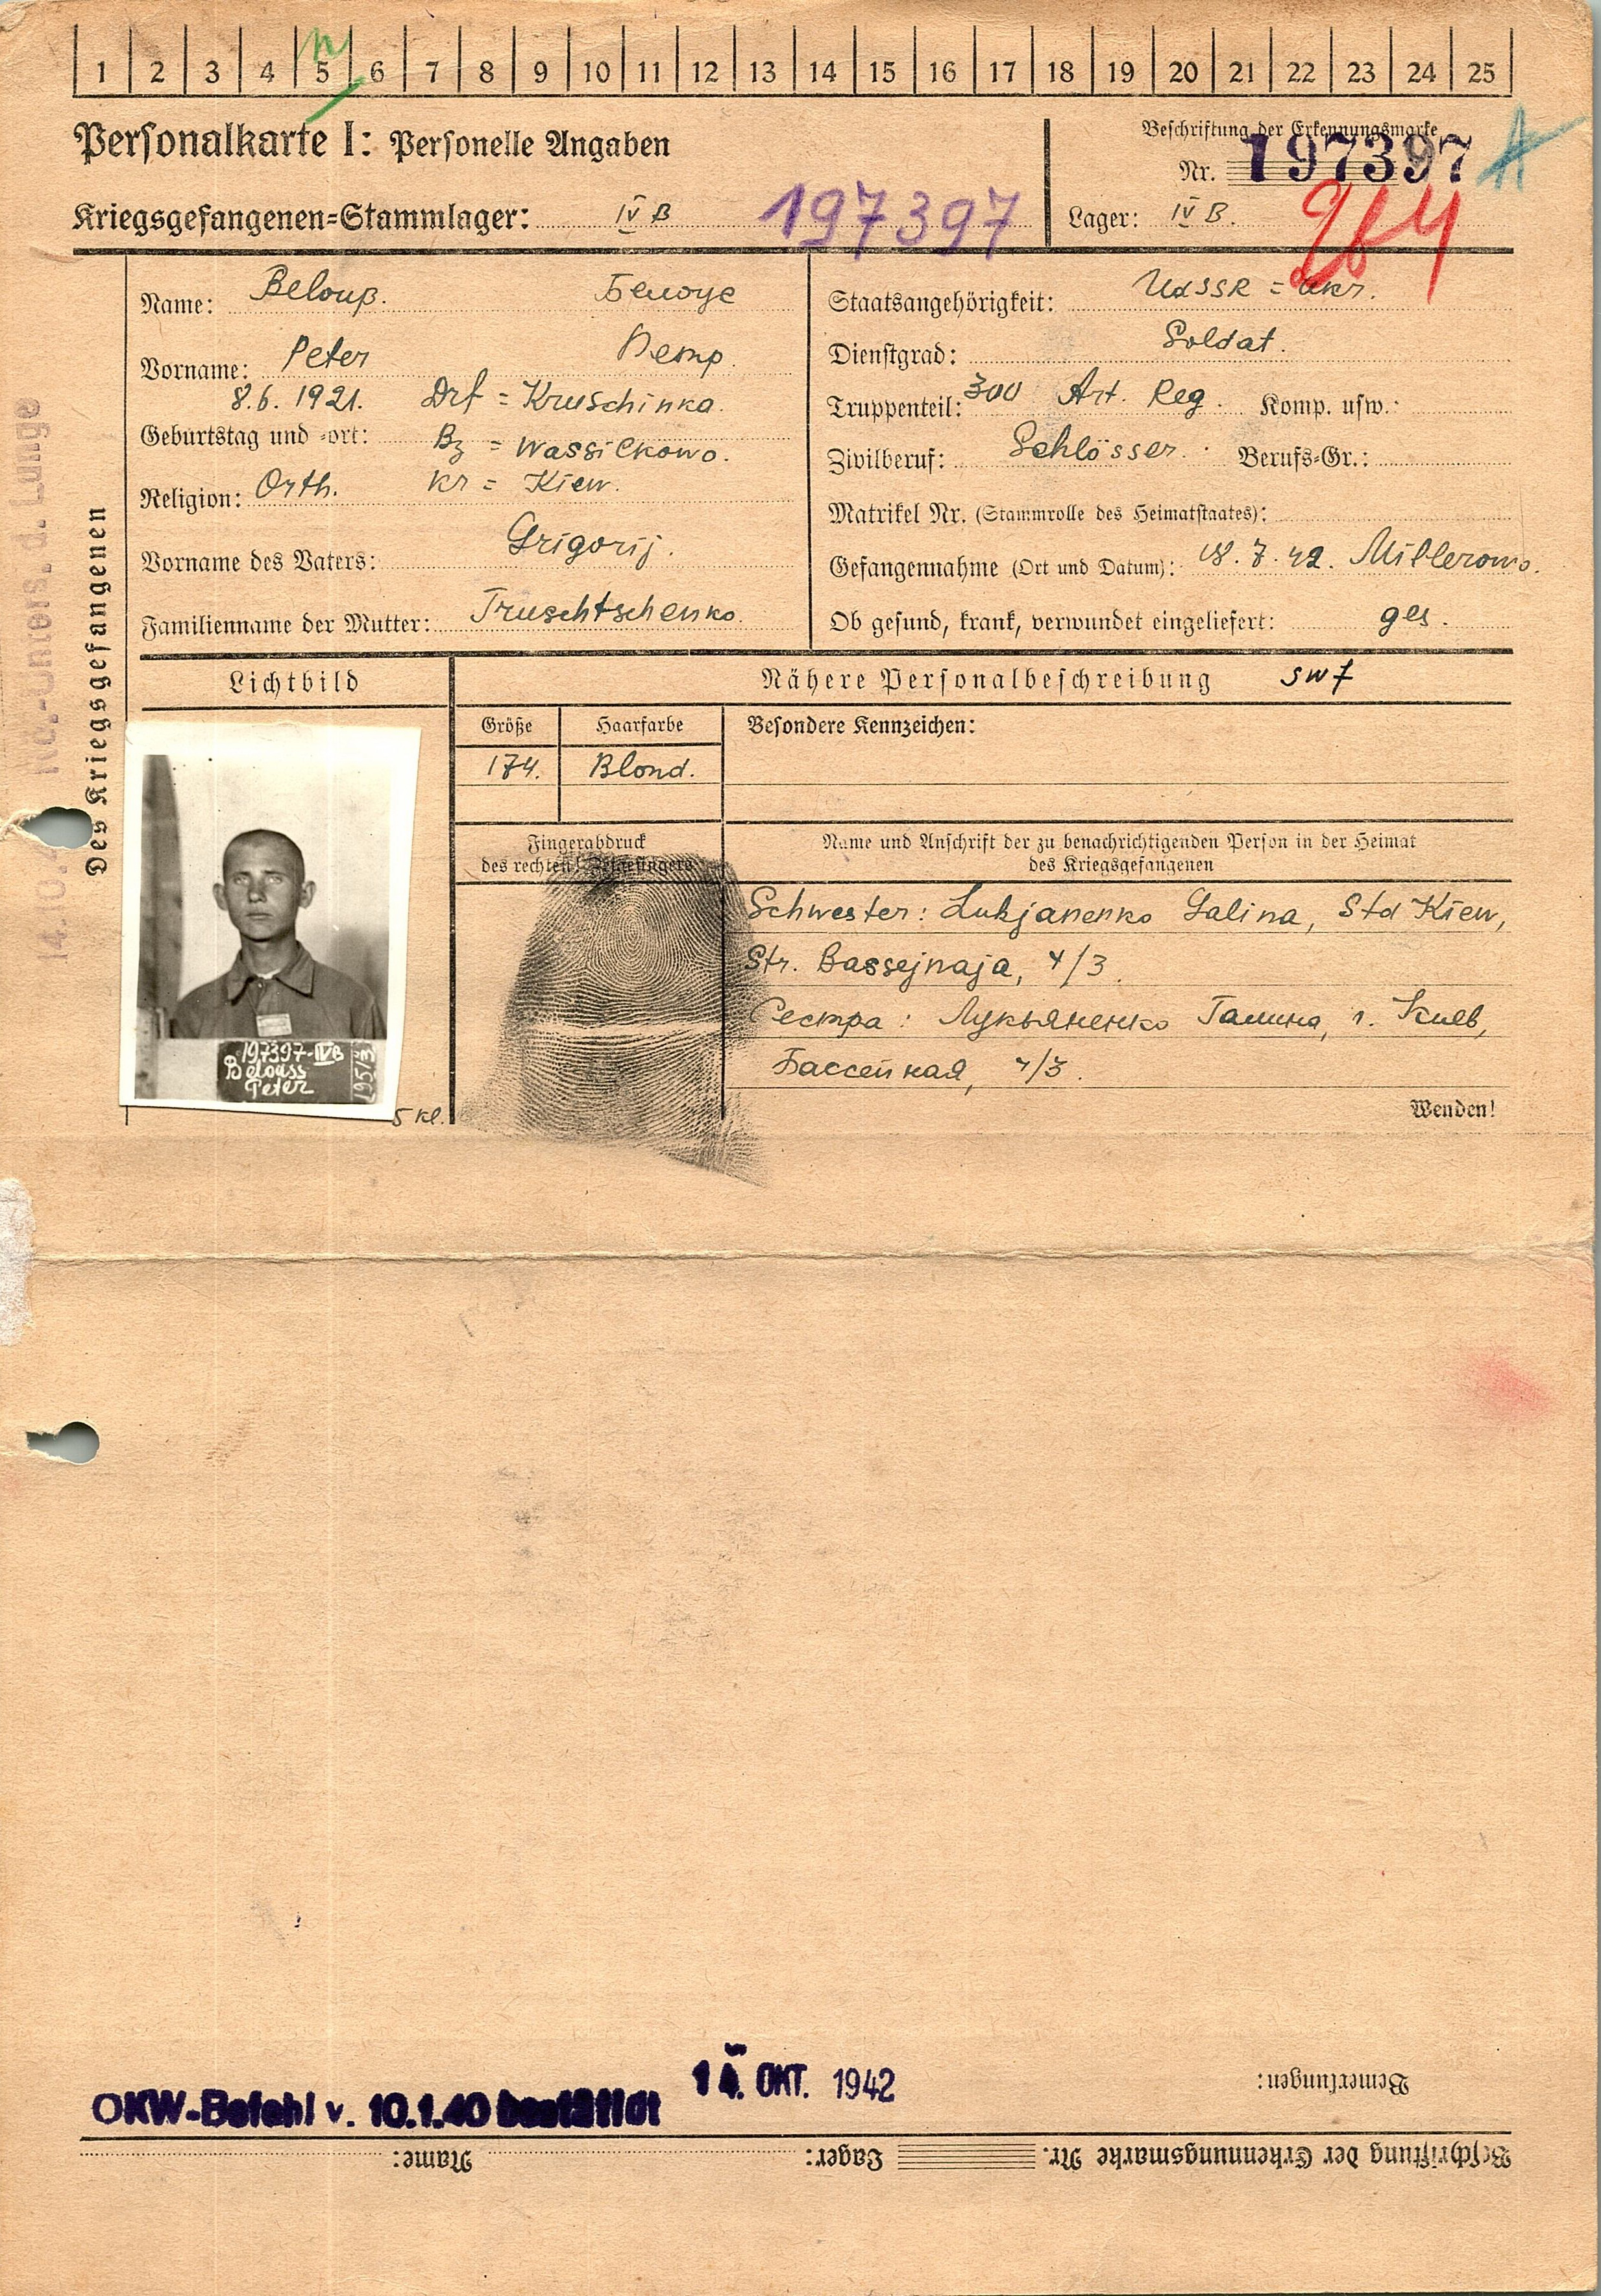 1 2 3 4 5 6 7 8 9 10 11 12 13 14 15 16 17 18 19 20 21 22 23 24 25
Personalkarte I: Personelle Angaben
Beschriftung der Erkennungsmarke
Nr. 197397
Kriegsgefangenen-Stammlager: IV B 197397
Lager: IV B.
264
Des Kriegsgefangenen
Name: Belouß. Белоус
Vorname: Peter Петр
8.6.1921. Drf = Kruschinka.
Geburtstag und -ort: Bz = Wassilkowo.
Religion: Orth. Kr = Kiew.
Vorname des Vaters: Grigorij.
Familienname der Mutter: Truschtschenko.
Staatsangehörigkeit: UdSSR = Ukr.
Dienstgrad: Soldat.
Truppenteil: 300 Art. Reg. Komp. usw.:
Zivilberuf: Schlösser. Berufs-Gr.:
Matrikel Nr. (Stammrolle des Heimatstaates):
Gefangennahme (Ort und Datum): 18.7.42. Millerowo.
Ob gesund, krank, verwundet eingeliefert: ges.
Lichtbild
Nähere Personalbeschreibung
Größe Haarfarbe Besondere Kennzeichen:
174. Blond.
Fingerabdruck
des rechten Zeigefingers
Name und Anschrift der zu benachrichtigenden Person in der Heimat
des Kriegsgefangenen
Schwester: Lukjanenko Galina, Std Kiew,
Str. Bassejnaja, 4/3.
Сестра: Лукьяненко Галина, г. Киев,
Бассейная, 4/3.
Wenden!
197397-IVB
Belouss
Peter
195/3
5 Kl.
Bemerkungen:
OKW-Befehl v. 10.1.40 bestätigt
14. OKT. 1942
Beschriftung der Erkennungsmarke Nr. Lager: Name: